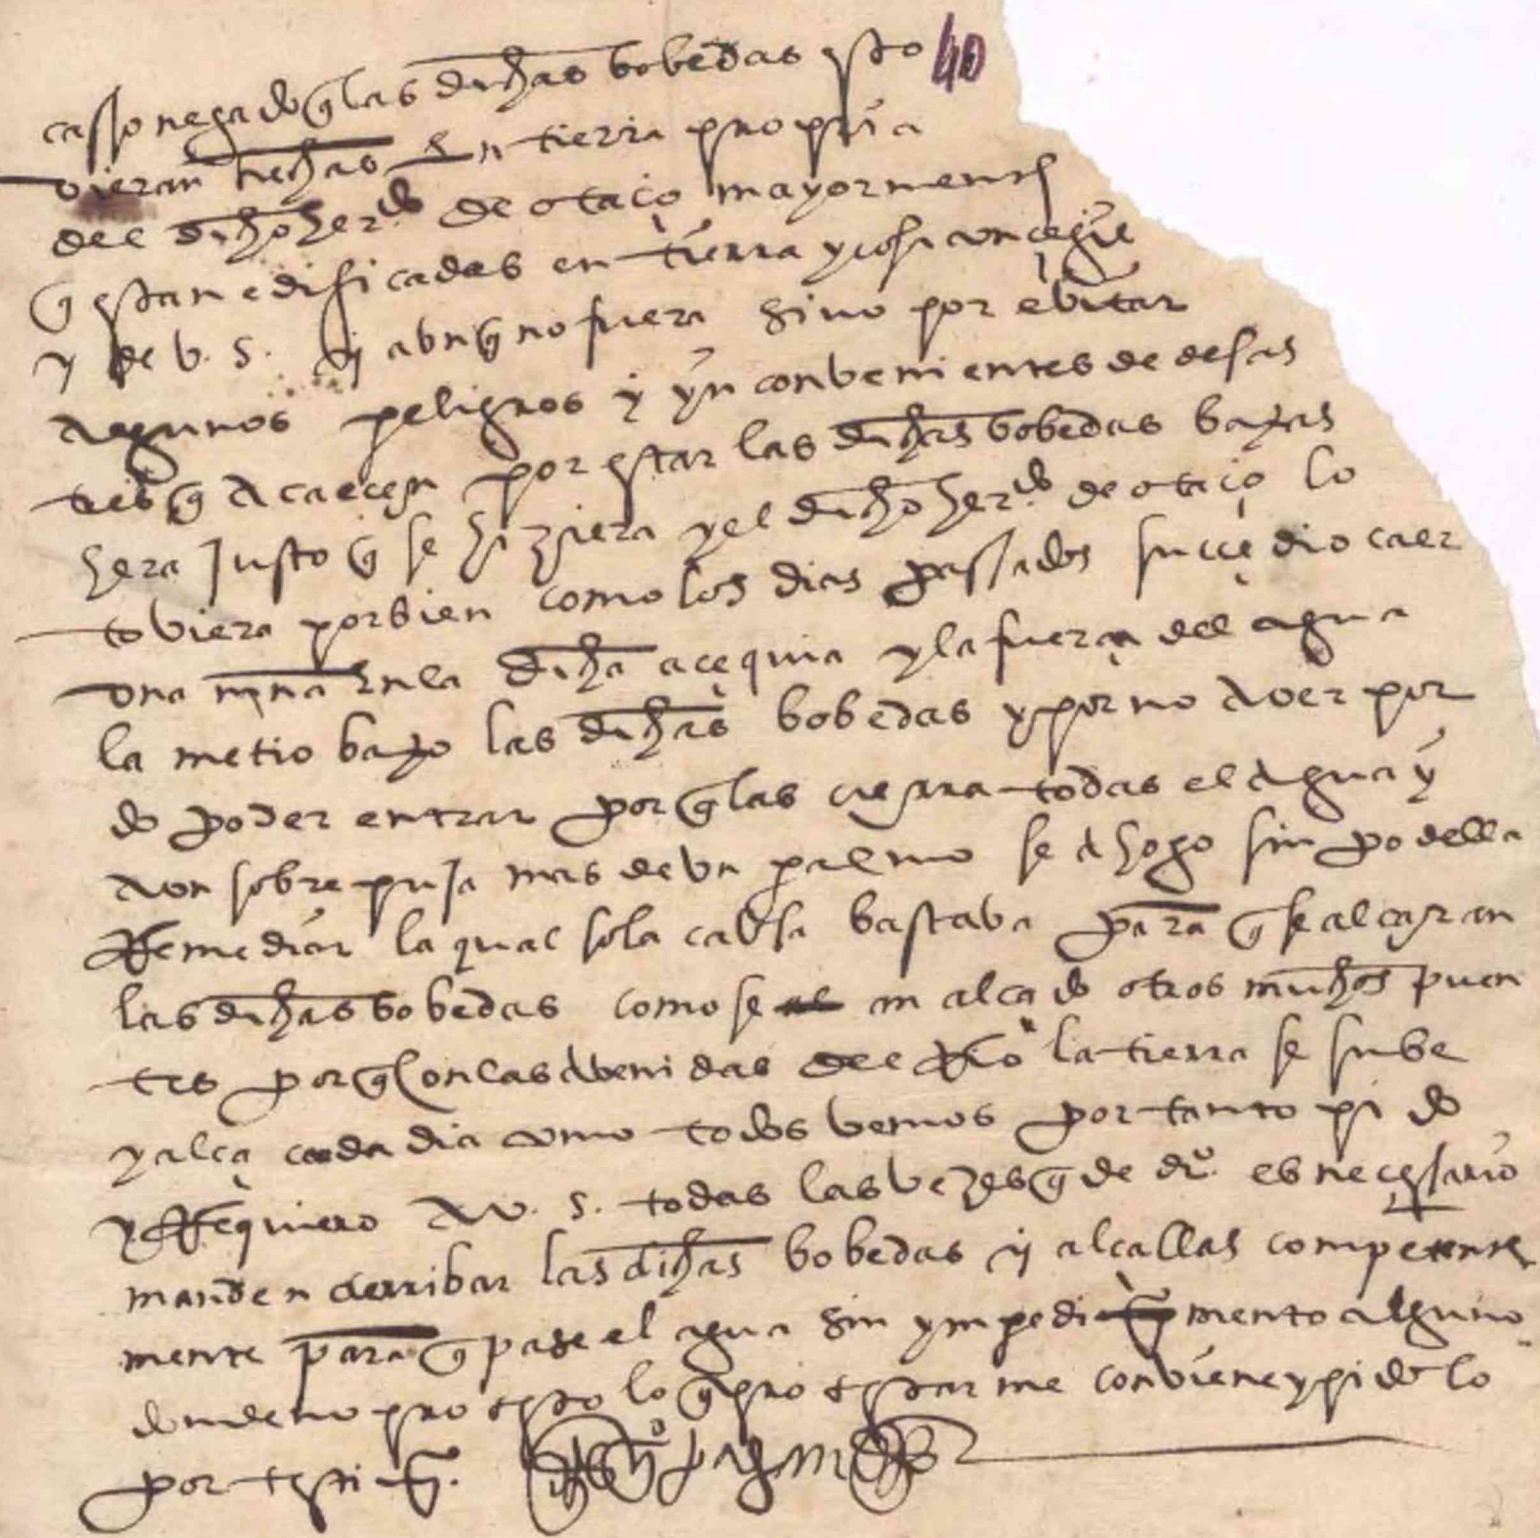 casso negado q̃ las dichas bobedas esto 40
vieran hechas En tierra propria
del dicho her.do de otaço mayormente
q̃ estan edificadas en tierra y cosa concegil
y de v. s. y abnq̃ no fuera sino por ebitar
algunos peligros y ynconbenientes de desas
tres q̃ Acaeçen por estar las dichas bobedas baxas
hera Justo q̃ se hiziera y el dicho her.do de otaço lo
tobiera por bien como los dias passados suçedio caer
vna niña En la dicha açequia y la fuerça del agua
la metio baxo las dichas bobedas y por no aver por
do poder entrar por q̃ las cierra todas el Agua y
Avn sobrepuja mas de vn palmo se Ahogo sin podella
Remediar la qual sola cabsa bastaba para q̃ se alçaran
las dichas bobedas como se an alçado otros muchos puen
tes por q̃ con las Abenidas del Rio la tierra se sube
y alça cada dia como todos vemos por tanto pido
y Requiero A v. s. todas las vezes q̃ de dr.o es neçessario
manden derribar las dichas bobedas y alçallas competente
mente para q̃ pase el agua sin ympedimento Alguno
donde no protesto lo q̃ protestar me conbiene y pidolo
por testi.o